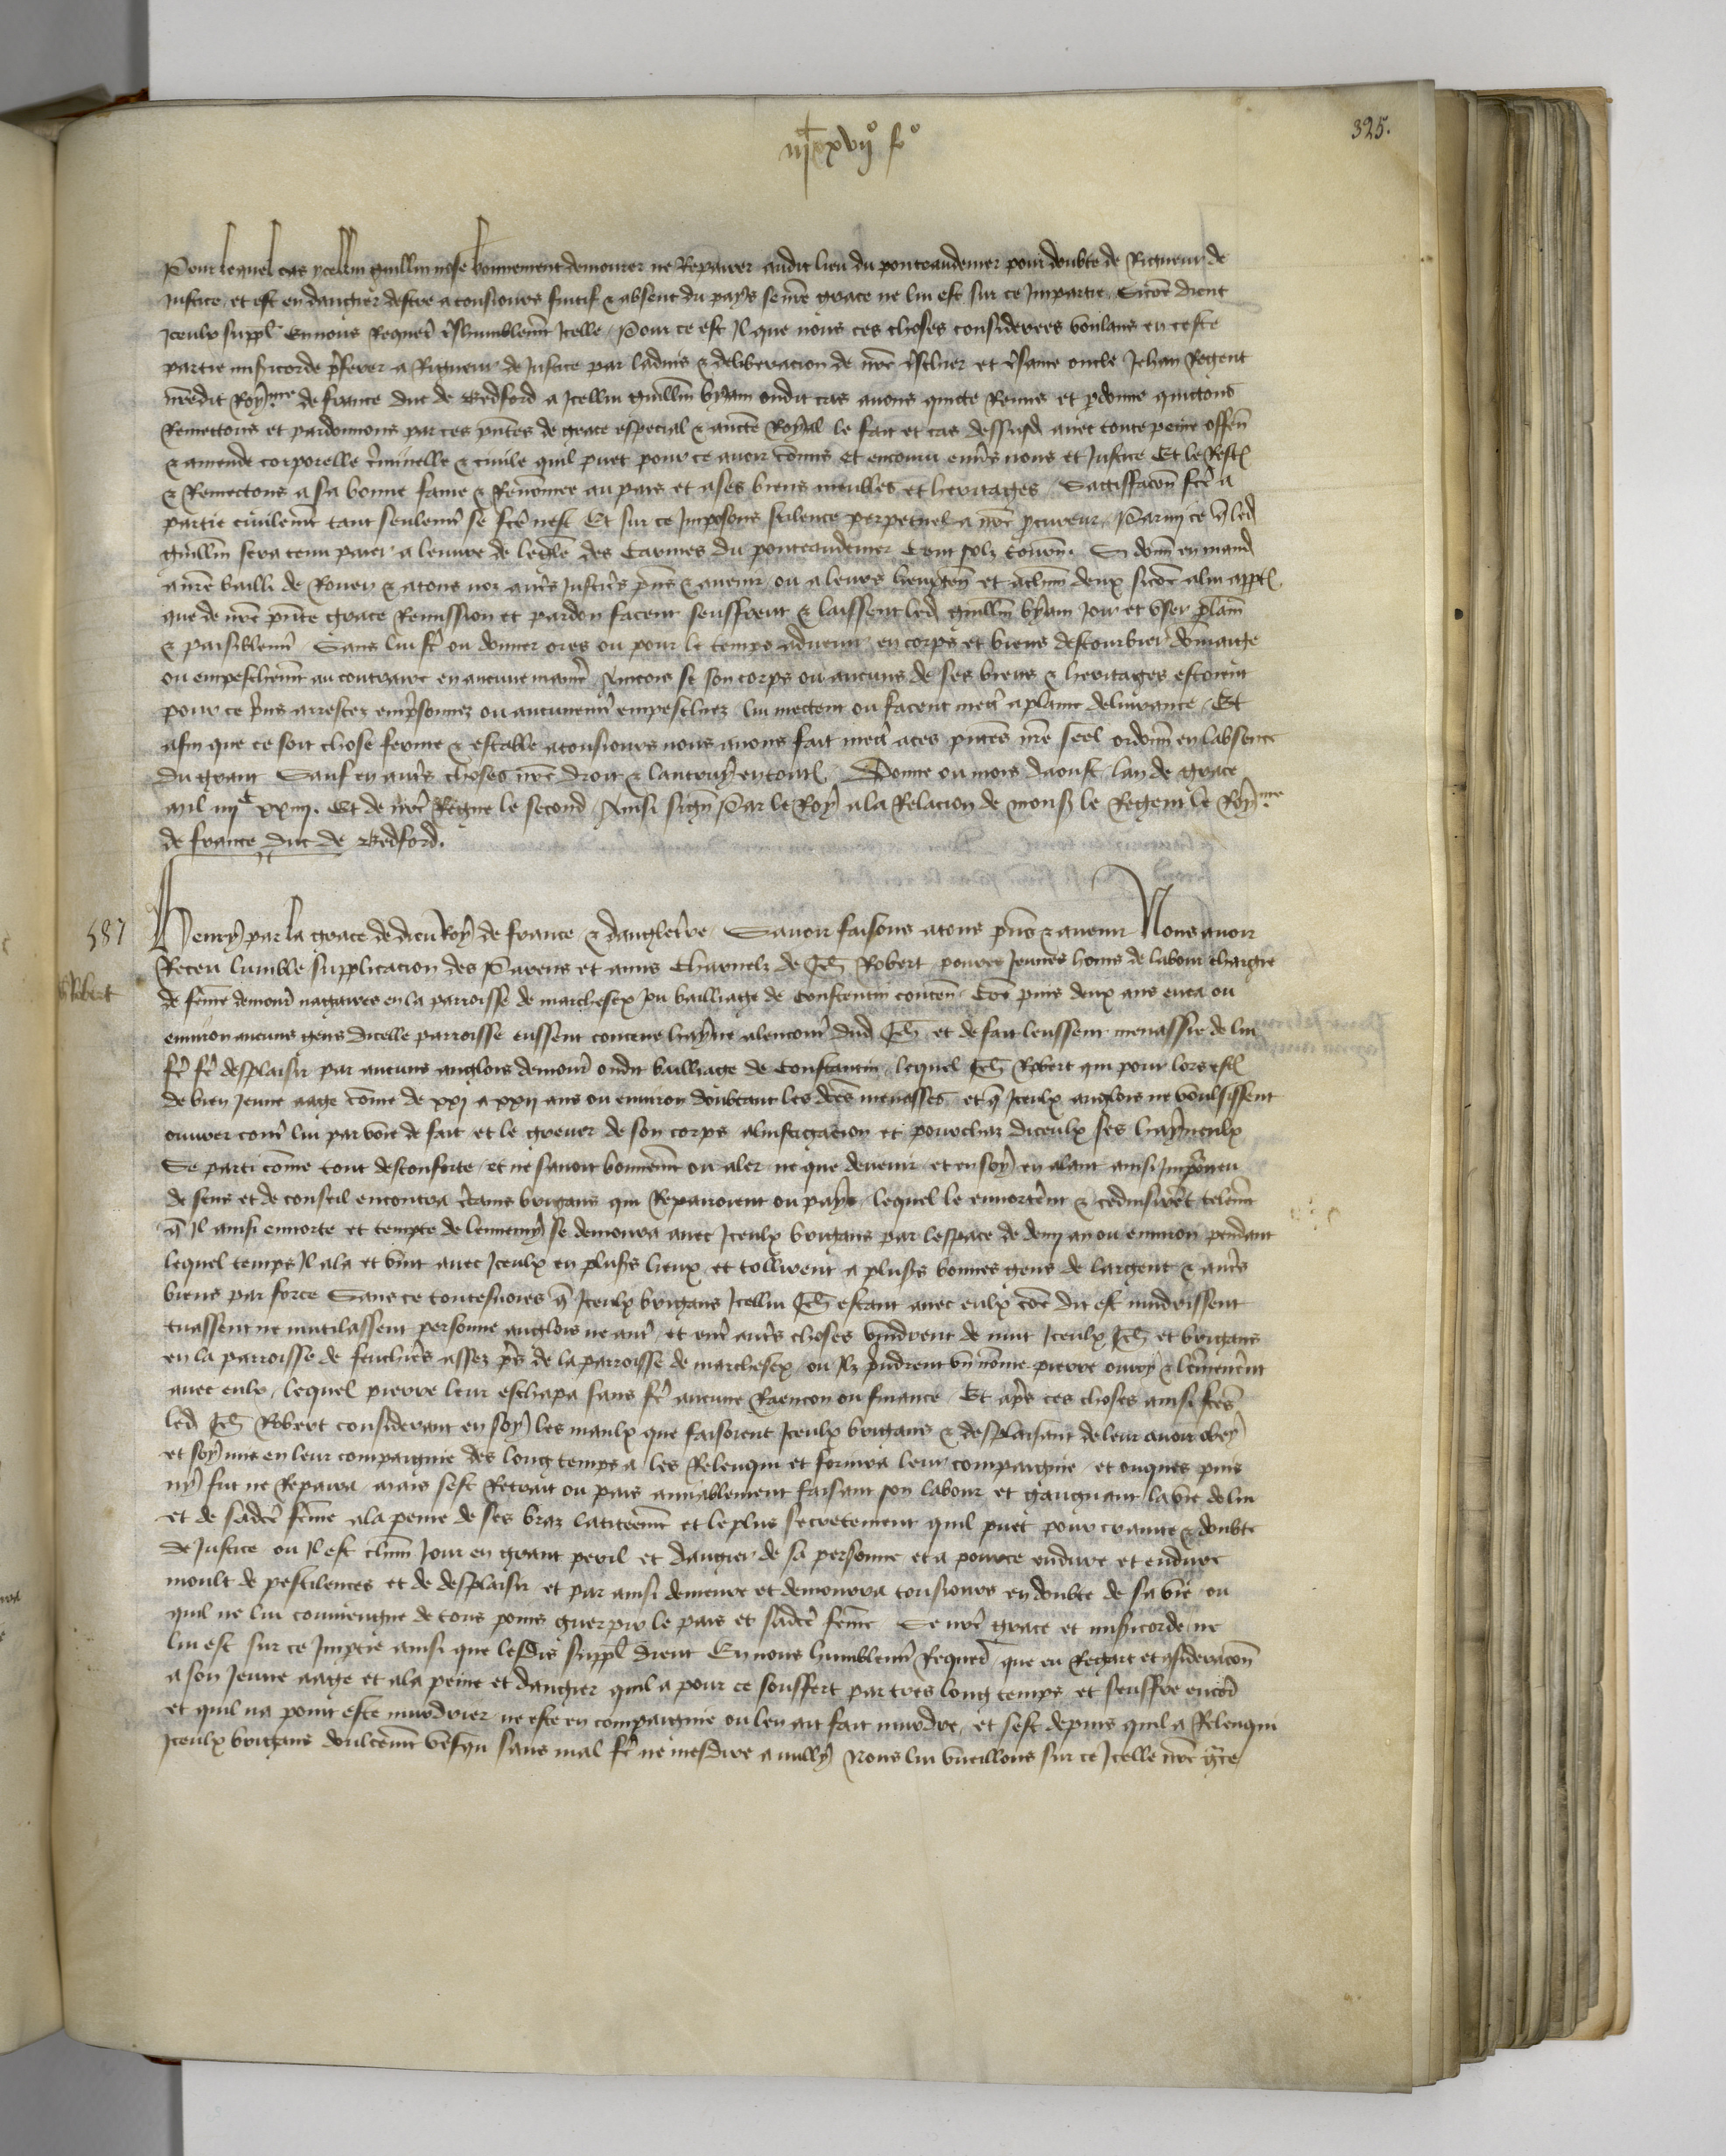 iijᶜxvijº fº
325.
Pour lequel cas ycellui guillm̄ nose bonnement demourer ne Repairer audit lieu du ponteaudemer pour doubte de Rigueur de
Justice et est en dangier destre a tousiours fuitif & absent du pays se nr̄e grace ne lui est sur ce Impartie Sicōe dient
Iceulx suppl̄ En nous Requer̄ tshumblemt̄ Icelle Pour ce est Il que nous ces choses considerees voulans en ceste
partie misericorde p̄ferer a Rigueur de Justice par laduis & deliberacion de nr̄e tschier et tsame oncle Jehan Regent
nr̄edit Roymᵉ de france duc de Bedford a Icellui guillm̄ byam oudit cas auons quicte Remis et pdonne quictons
Remettons et pardonnons par ces pn̄tes de grace especial & auctē Royal le fait et cas dessusd auec toute peine offen̄
& amende corporelle criminelle & ciuile quil puet pour ce auoir cōmis et encouru enūs nous et Justice Et le Rest
& Remectons a sa bonne fame & Renōmee au pais et a ses biens meubles et heritages Sattisfacōn fcē a
partie ciuilemt̄ tant seulemt̄ se fcē nest Et sur ce Imposons silence perpetuel a nr̄e pcureur Parmi ce q̄ led
guillm̄ sera tenu paier a leuure de leglē des Carmes du ponteaudemer Cent solz tourn̄ Si donn̄ en mand
a nr̄e bailli de Rouen & a tous noz autr̄s Justicr̄s pn̄s & auenir ou a leurs lieuxten̄ et a chūn deulx sicōe a lui apptˡ
que de nr̄e pn̄te grace Remission et pardon facent seuffrent & laissent led guillm̄ byam Joir et vser plaīm
& paisiblemt̄ Sans lui fr̄e ou donner ores ou pour le temps aduenir en corps et biens destourbier dōmaige
ou empeschemt̄ au contraire en aucune manr̄e Aincois se son corps ou aucuns de ses biens & heritages estoient
pour ce p̄ns arrestez emp̄sonnez ou aucunemt̄ empeschiez lui mectent ou facent mectr̄e a plaine deliurance Et
afin que ce soit chose ferme & estable a tousiours nous auons fait mectr̄e a ces pn̄tes nr̄e seel ordonn̄ en labsence
du grant Sauf en autr̄s choses nr̄e droit & lautruy en toutˡ Donne ou mois daoust lan de grace
mil iiijᶜ xxiiij. Et de nr̄e Regne le second Ainsi sign̄ Par le Roy a la Relacion de monsʳ le Regent le Roymᵉ
de france duc de Bedford.
587
Henry par la grace de dieu Roy de france & dangletr̄re Sauoir faisons a tous pn̄s & auenir Nous auoir
Receu lumble supplicacion des Parens et amis Charnelz de Jeħ Robert poure Jeunes homs de labour chargie
Robert
de fēme demour̄ nagaires en la parroisse de marchesex Ou bailliage de Constentin conten̄ Cōe puis deux ans enca ou
enuiron aucuns gens dicelle parroisse eussent conceue hayne alencontr̄e dud Jeħ et de fait leussent menassie de lui
fr̄e fr̄e desplaisir par aucuns anglois demour̄ oudit bailliage de Constantin lequel Jeħ Robert qui pour lors estˡ
de bien Jeune aage cōme de xxj a xxij ans ou enuiron doubtant les dc̄es menasses et q̄ Iceulx anglois ne voulsissent
ouurer contr̄ lui par voie de fait et le greuer de son corps a linstigacion et pourchaz diceulx ses hayneulx
Se parti cōme tout desconforte et ne sauoit bonnemt̄ ou aler ne que deuenir et en soy en alant ainsi Impourueu
de sens et de conseil encontra ctains brigans qui Repairoient ou pays lequel le ennorterent & seduisirēt telemt̄
q̄ Il ainsi ennorte et tempte de lennemy se demoura auec Iceulx brigans par lespace de demj an ou enuiron pendant
lequel temps Il ala et vint auec Iceulx en plusrs lieux et tollirent a plusrs bonnes gens de largent & autr̄s
biens par force Sans ce touteuoies q̄ Iceulx brigans Icellui Jeħ estant auec eulx cōe dit est murdrissent
tuassent ne mutilassent personne anglois ne autr̄ et entr̄ autr̄s choses vindrent de nuit Iceulx Jeħ et brigans
en la parroisse de feuchr̄es assez pr̄s de la parroisse de marchesex ou Ilz prindrent vn nōme pierre ourry & lēmenerent
auec eulx lequel pierre leur eschapa sans fr̄e aucune Raencon ou finance Et apr̄s ces choses ainsi fcēs
led Jeħ Robert considerant en soy les maulx que faisoient Iceulx brigans & desplaisant de leur auoir obey
et soy mis en leur compaignie des long temps a les Relenqui et forma leur compaignie et onques puis
ny fut ne Repaira mais sest Retrait ou pais amiablement faisant son labour et gaignant la vie de lui
et de sadc̄e fēme a la peine de ses braz latitemt̄ et le plus secretement quil puet pour crainte & doubte
de Justice ou Il est chūn Jour en grant peril et dangier de sa personne et a pource endure et endure
moult de pestilences et de desplaisir et par ainsi demeure et demourra tousiours en doubte de sa vie ou
quil ne lui conuiengne de tous poins guerpir le pais et sadc̄e fēme Se nr̄e grace et misericorde ne
lui est sur ce Imptie ainsi que lesdis suppl̄ dient En nous humblemt̄ Requer̄ que eu Regart et cōsideracōn
a son Jeune aage et a la peine et dangier quil a pour ce souffert par tres long temps et seuffre encor̄
et quil na point este murdrier ne este en compaignie ou len ait fait murdre et sest depuis quil a Relenqui
Iceulx brigans doulcemt̄ vesqu sans mal fr̄e ne mesdire a nully Nous lui vueillons sur ce Icelle nr̄e gr̄ce